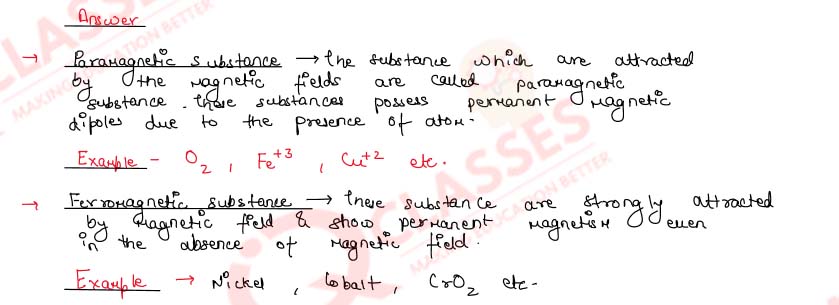 Answer
→ Paramagnetic substance → the substance which are attracted
by the magnetic fields are called paramagnetic
substance. these substances possess permanent magnetic
dipoles due to the presence of atom.
Example - O2 , Fe+3 , Cu+2 etc.
→ Ferromagnetic substance → these substance are strongly attracted
by magnetic field & show permanent magnetism even
in the absence of magnetic field.
Example → Nickel , Cobalt , CrO2 etc-
CLASSES
MAKING EDUCATION BETTER